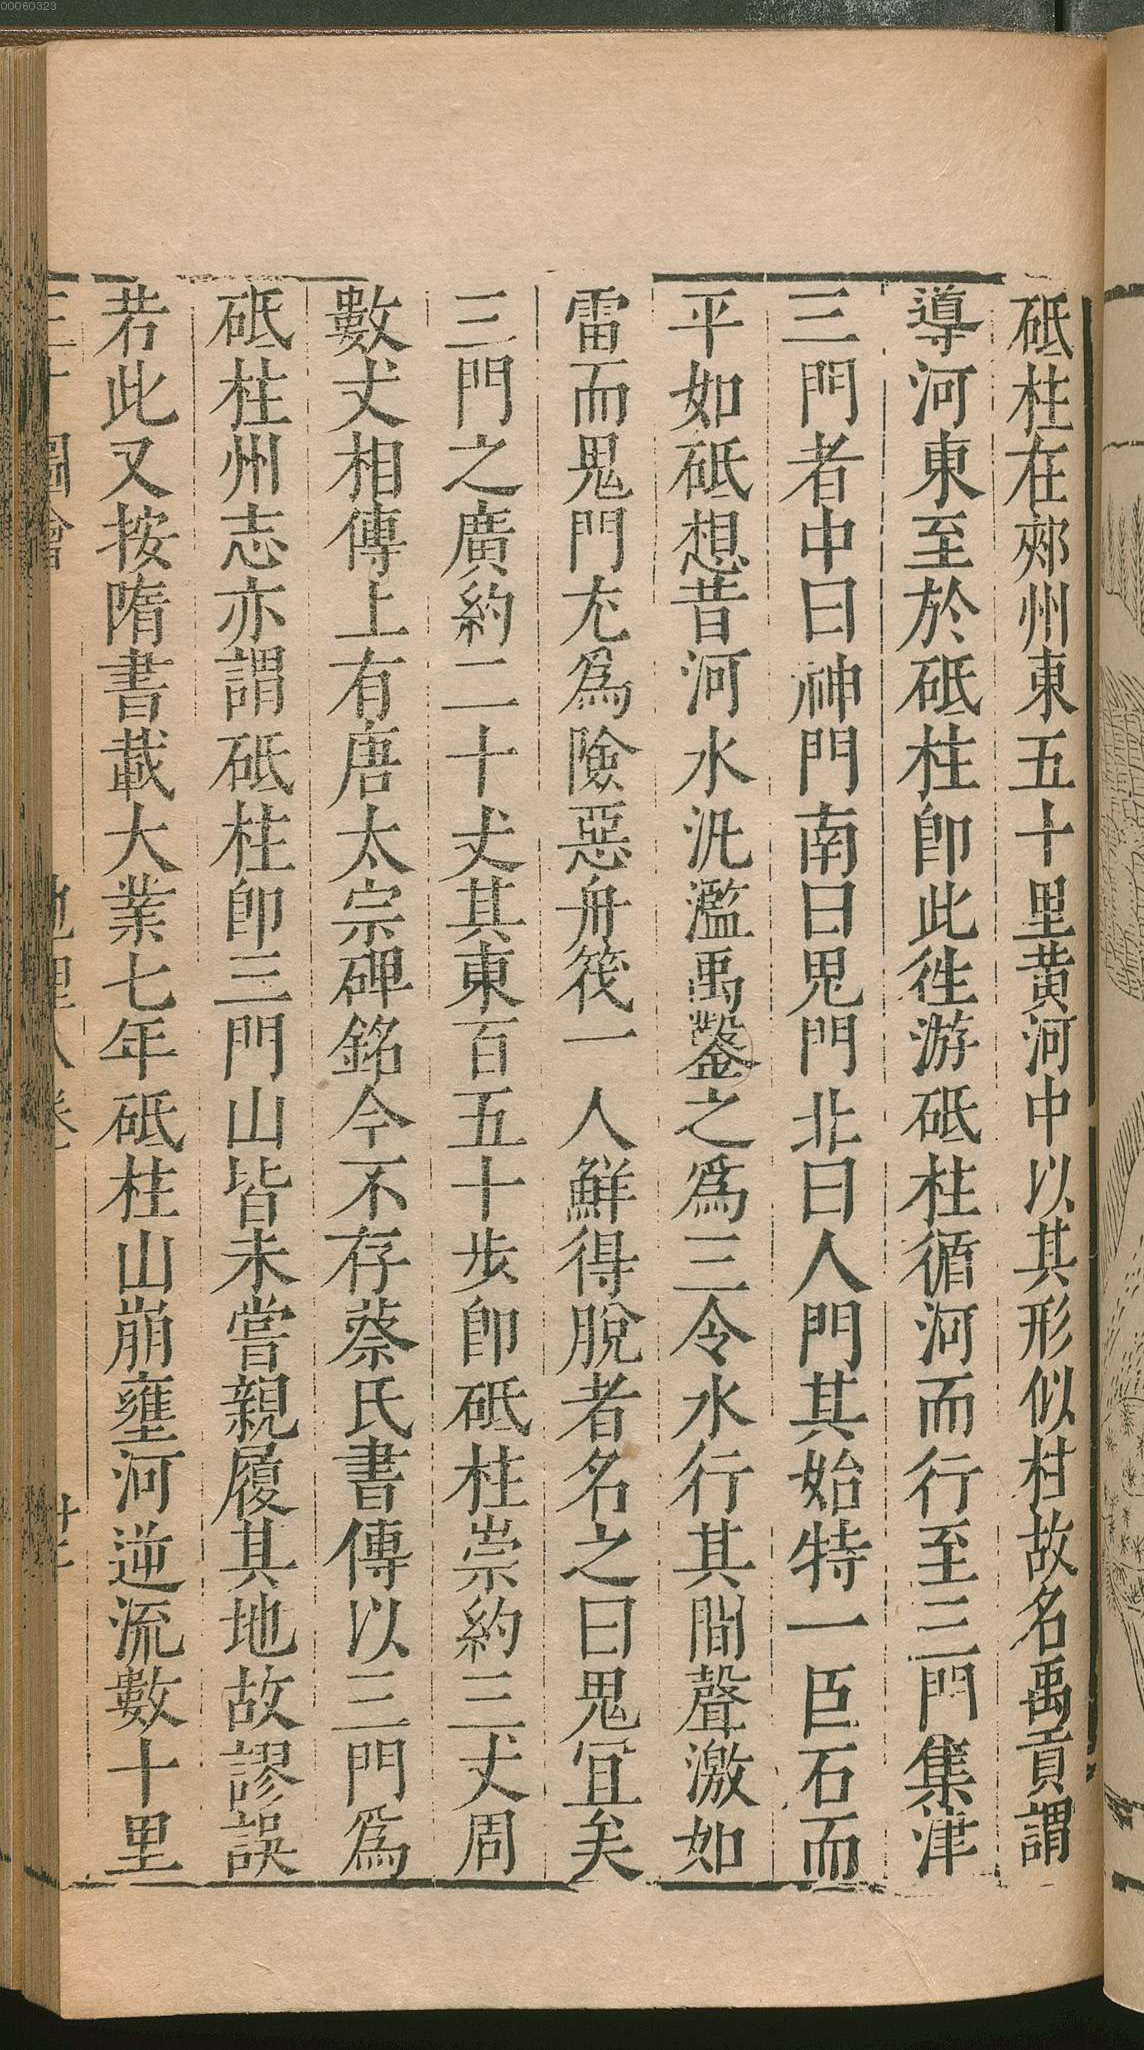 00060323
砥柱在郟州東五十里黄河中以其形似柱故名禹貢謂
導河東至於砥柱卽此徃游砥柱循河而行至三門集津
三門者中曰神門南曰鬼門北曰人門其始特一巨石而
平如砥想昔河水汎濫禹鑿之爲三令水行其間聲激如
雷而鬼門尤爲險惡舟筏一人鮮得脫者名之曰鬼宜矣
三門之廣約二十丈其東百五十步卽砥柱崇約三丈周
數丈相傳上有唐太宗碑銘今不存蔡氏書傳以三門爲
砥柱州志亦謂砥柱卽三門山皆未嘗親履其地故謬誤
若此又按隋書載大業七年砥柱山崩壅河逆流數十里